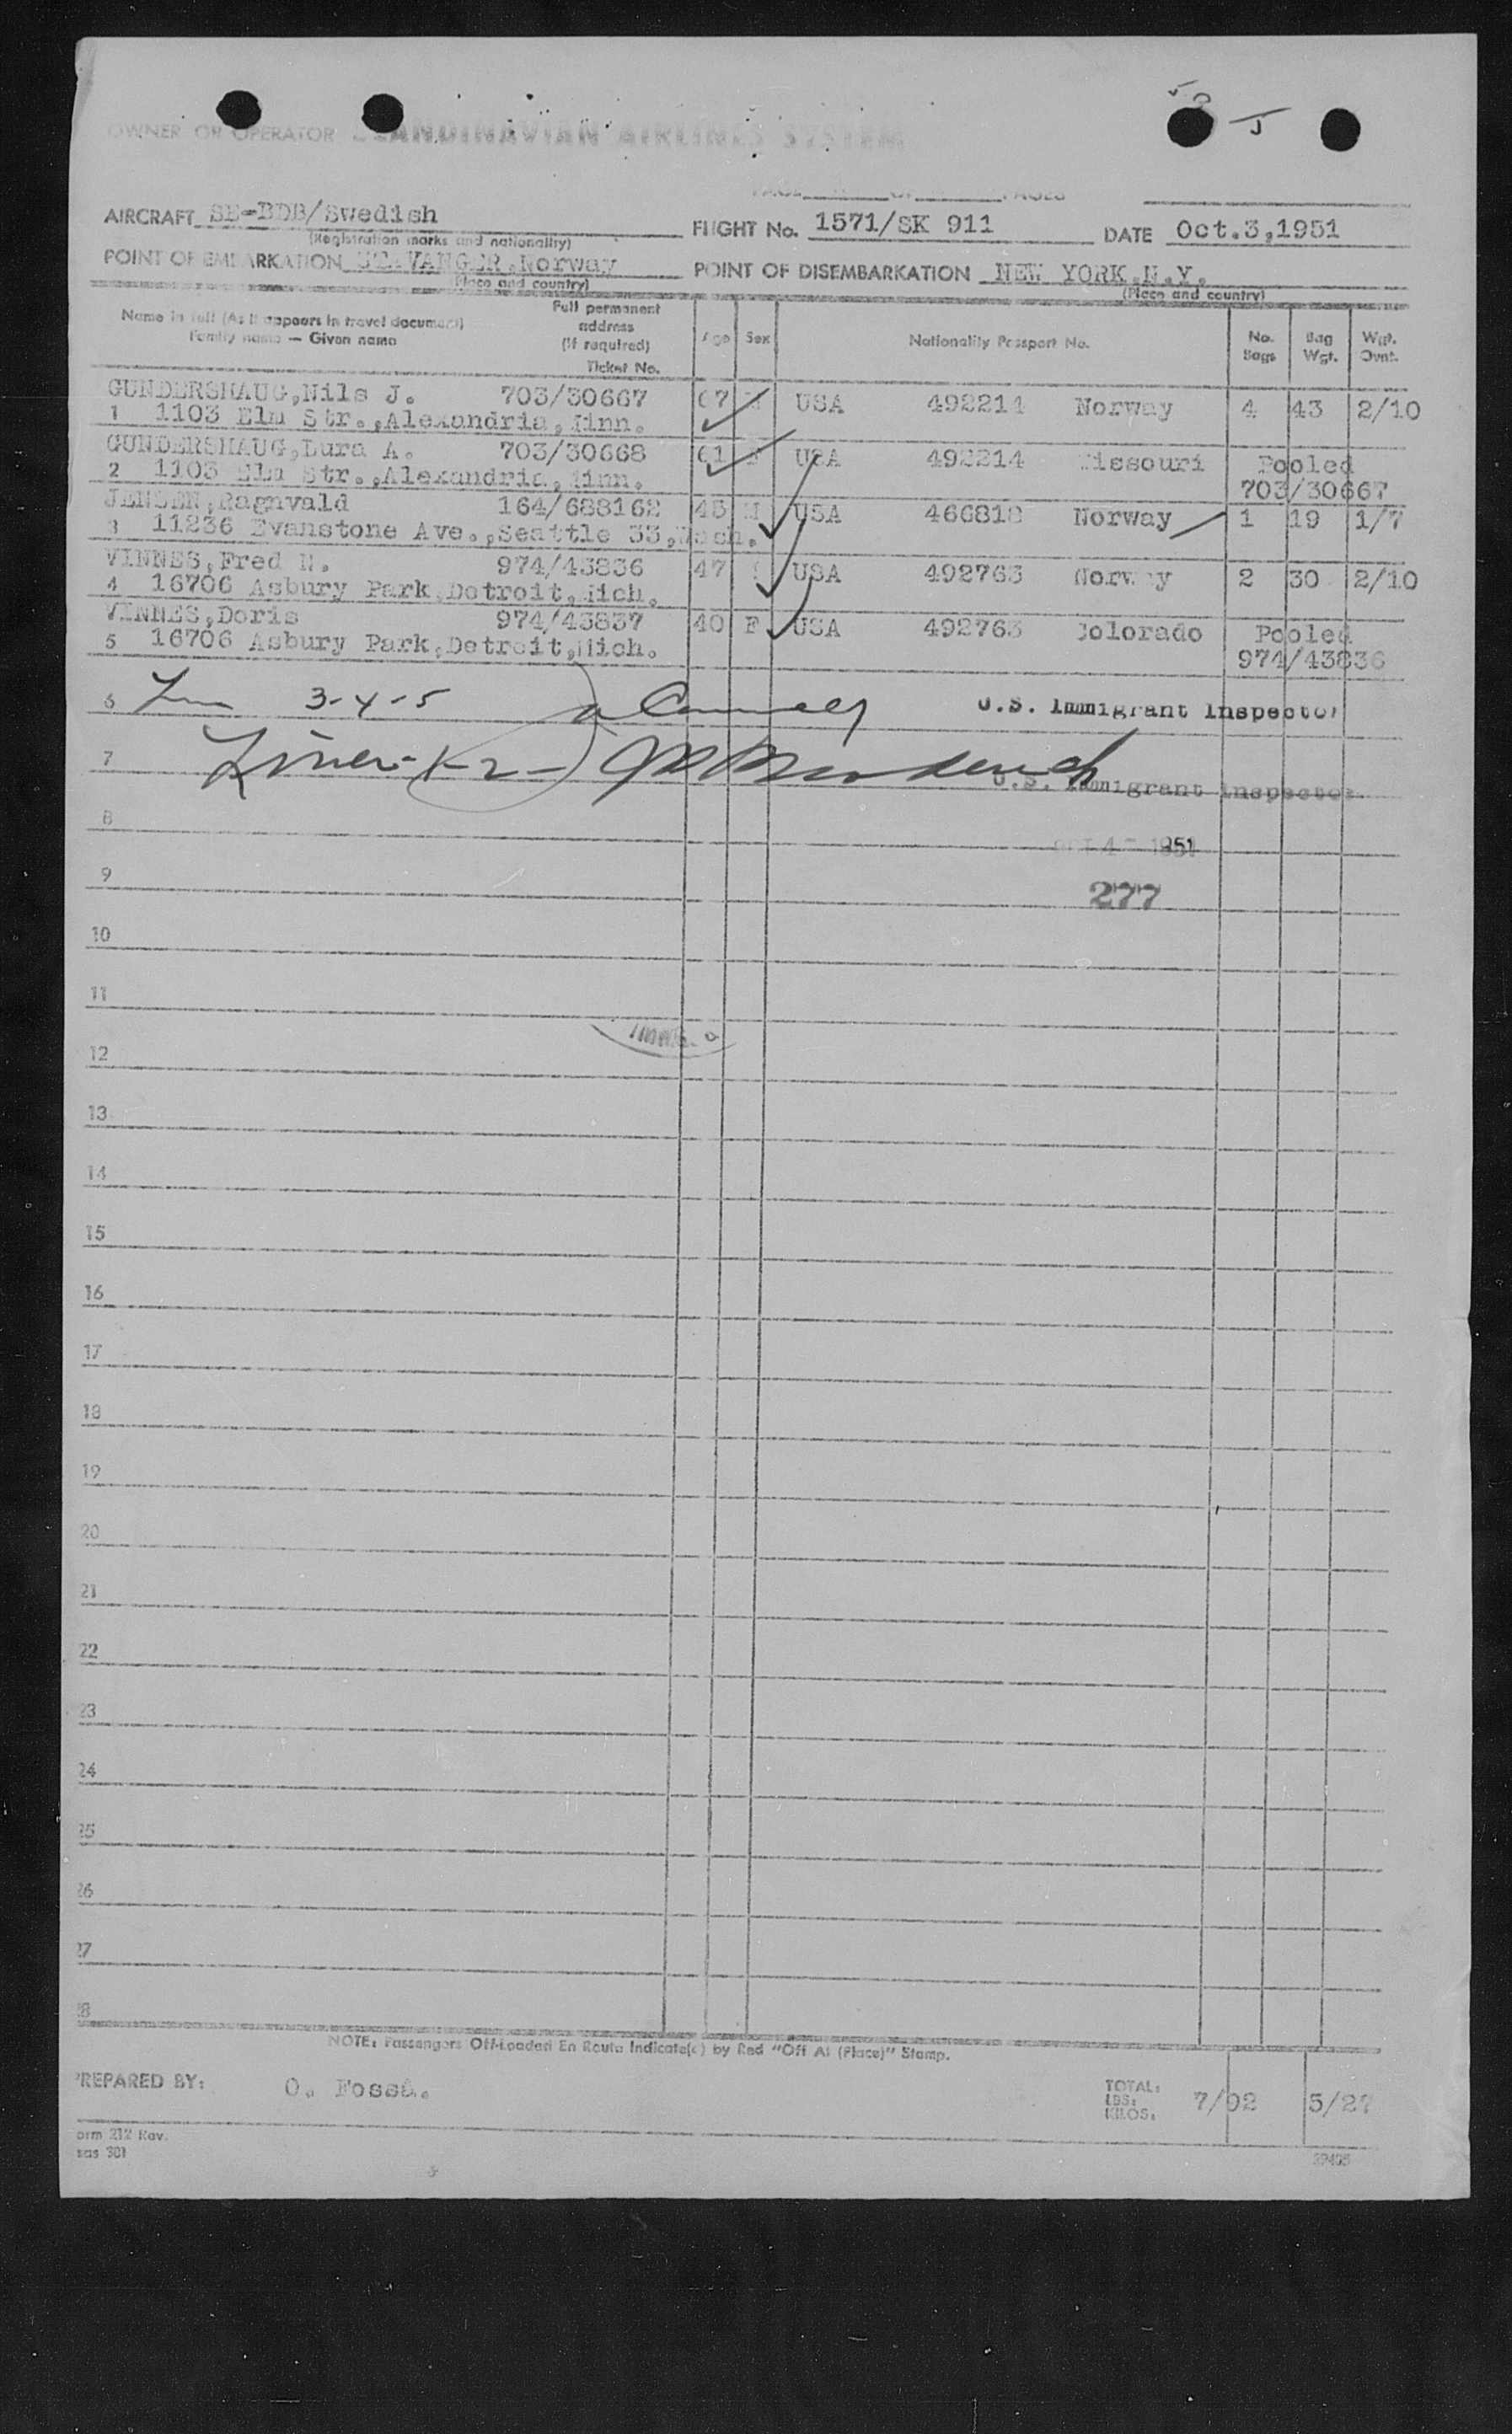 OWNER OR OPERATOR SCANDINAVIAN AIRLINES SYSTEM
PAGE OF PAGES
AIRCRAFT SE-BDB/Swedish FLIGHT No. 1571/SK 911 DATE Oct.3,1951
(Registration marks and nationality)
POINT OF EMBARKATION STAVANGER,Norway POINT OF DISEMBARKATION NEW YORK,N.Y.
(Place and country) (Place and country)
Name in full (As it appears in travel document) Family name — Given name
Full permanent address (if required) Ticket No.
Age Sex Nationality Passport No. No. Bags Bag Wgt. Wgt. Ovnt.
GUNDERSHAUG,Nils J. 703/30667 67 M USA 492214 Norway 4 43 2/10
1 1103 Elm Str.,Alexandria,Minn.
GUNDERSHAUG,Lura A. 703/30668 61 F USA 492214 Missouri Pooled
2 1103 Elm Str.,Alexandria,Minn. 703/30667
JENSEN,Ragnvald 164/688162 45 M USA 466818 Norway 1 19 1/7
3 11236 Evanstone Ave.,Seattle 33,Wash.
VINNES,Fred N. 974/43836 47 USA 492763 Norway 2 30 2/10
4 16706 Asbury Park,Detroit,Mich.
VINNES,Doris 974/43837 40 F USA 492763 Colorado Pooled
5 16706 Asbury Park,Detroit,Mich. 974/43836
6 3-4-5 U.S. Immigrant Inspector
7 U.S. Immigrant Inspector
8
OCT 4 - 1951
9
277
10
11
12
13
14
15
16
17
18
19
20
21
22
23
24
25
26
27
28
NOTE: Passengers Off-Loaded En Route Indicate(d) by Red "Off At (Place)" Stamp.
PREPARED BY: O. Fosså. TOTAL: LBS: KILOS: 7/92 5/27
orm 212 Rev.
sas 301